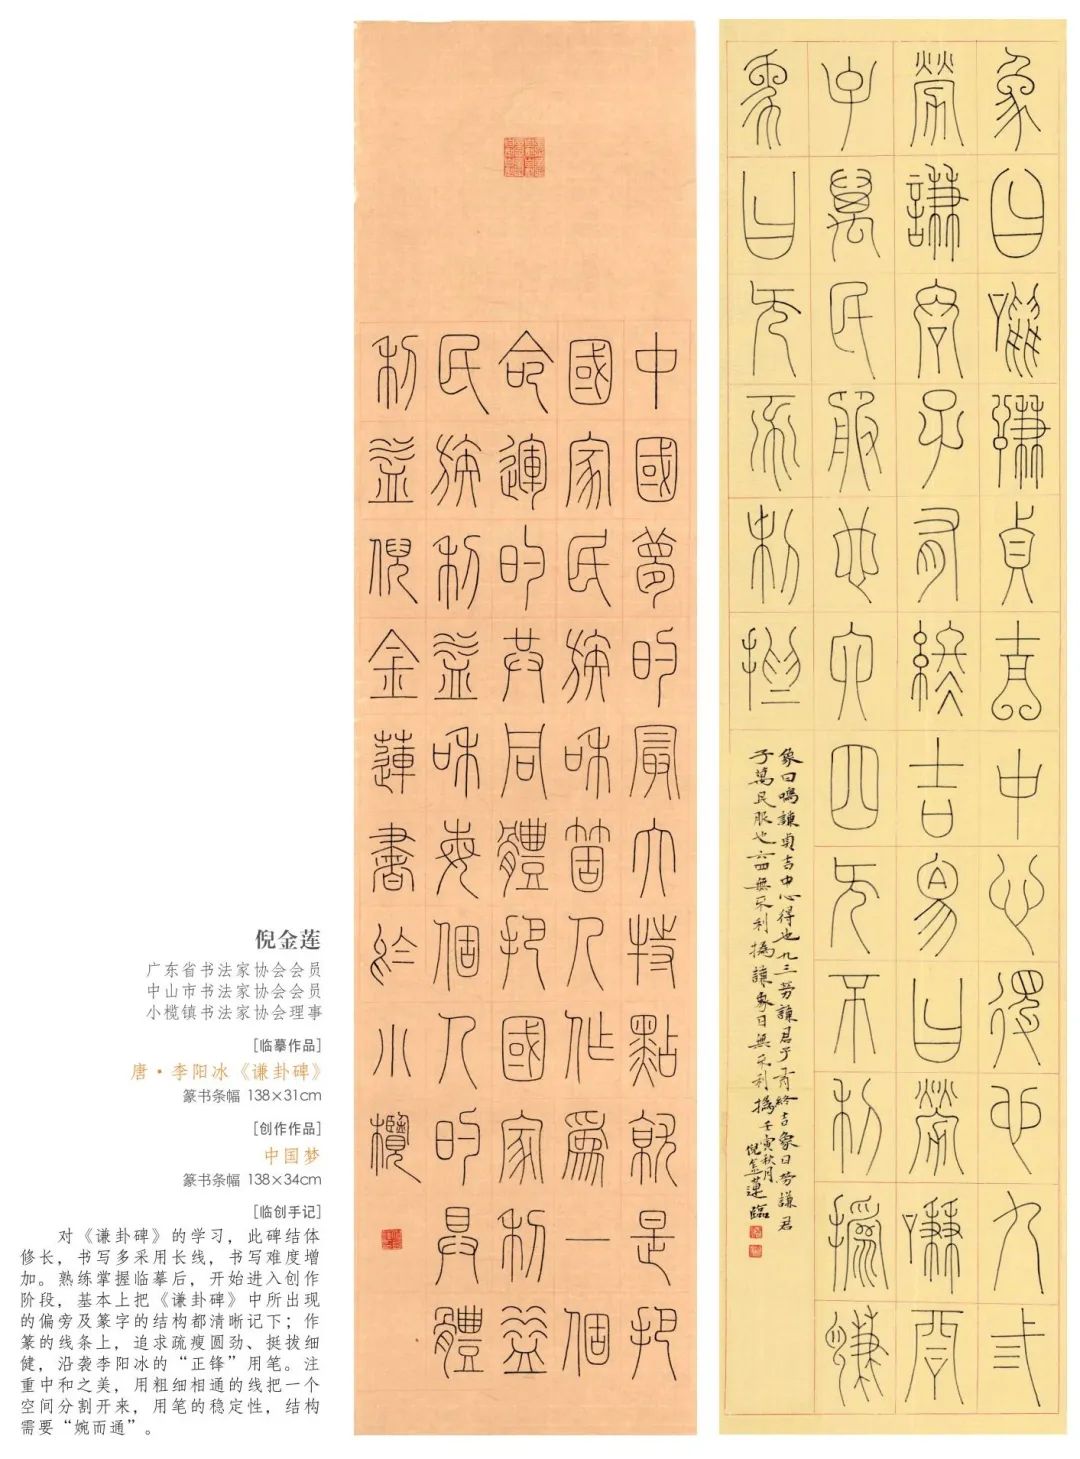 倪金莲
广东省书法家协会会员
中山市书法家协会会员
小榄镇书法家协会理事
[临摹作品]
唐·李阳冰《谦卦碑》
篆书条幅 138×31cm
[创作作品]
中国梦
篆书条幅 138×34cm
[临创手记]
对《谦卦碑》的学习，此碑结体
修长，书写多采用长线，书写难度增
加。熟练掌握临摹后，开始进入创作
阶段，基本上把《谦卦碑》中所出现
的偏旁及篆字的结构都清晰记下；作
篆的线条上，追求疏瘦圆劲、挺拔细
健，沿袭李阳冰的“正锋”用笔。注
重中和之美，用粗细相通的线把一个
空间分割开来，用笔的稳定性，结构
需要“婉而通”。
中國夢的最大特點就是把
國家民族和箇人作爲一個
命運的共同體把國家利益
民族利益和每個人的具體
利益倪金蓮書於小欖
象曰鳴謙貞吉中心得也九三
勞謙君子有終吉象曰勞謙君
子萬民服也六四无不利撝謙
象曰无不利撝
象曰鳴謙貞吉中心得也九三勞謙君子有終吉象曰勞謙君
子萬民服也六四無不利撝謙象曰無不利撝壬寅秋月
倪金蓮臨